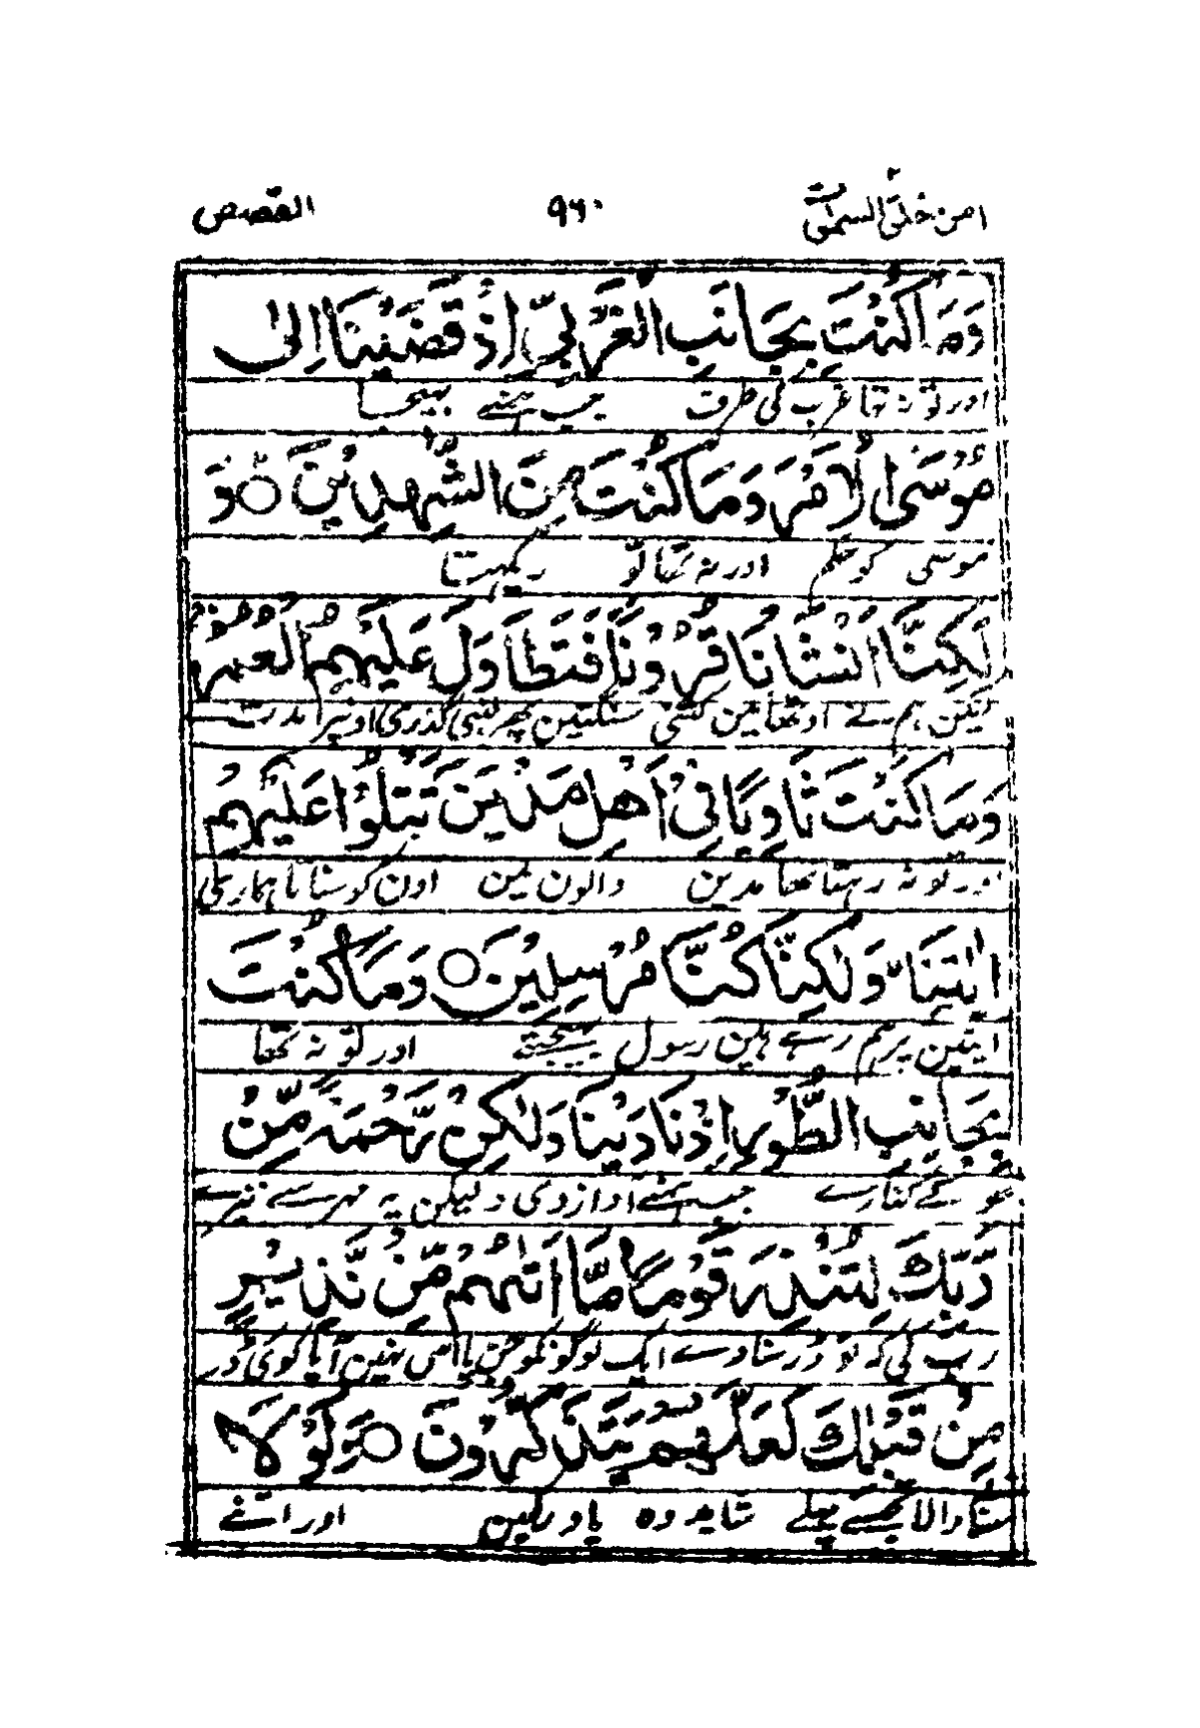 امن خلق السموت ٢٠ ٩٦٠ القصص
وَمَا كُنْتَ بِجَانِبِ الْغَرْبِيِّ إِذْ قَضَيْنَا إِلٰى
اور تو نہ تھا غرب کی طرف جب ہمنے بھیجا
مُوسَى الْاَمْرَ وَمَا كُنْتَ مِنَ الشّٰهِدِيْنَ ۝ وَ
موسی کو حکم اور نہ تھا تو دیکھتا
لٰكِنَّا اَنْشَاْنَا قُرُوْنًا فَتَطَاوَلَ عَلَيْهِمُ الْعُمُرُ
لیکن ہم نے اوٹھائین کتنی سنگتین پھر لنبی گذری اونپر مدت
وَمَا كُنْتَ ثَاوِيًا فِيْ اَهْلِ مَدْيَنَ تَتْلُوْا عَلَيْهِمْ
اور تو نہ رہتا تھا مدین والون مین اون کو سناتا ہماری
اٰيٰتِنَا وَلٰكِنَّا كُنَّا مُرْسِلِيْنَ ۝ وَمَا كُنْتَ
ایتین پر ہم رہے ہین رسول بھیجتے اور تو نہ تھا
بِجَانِبِ الطُّوْرِ اِذْ نَادَيْنَا وَلٰكِنْ رَّحْمَةً مِّنْ
طور کے کنارے جب ہمنے آواز دی و لیکن یہ مہر سے تیرے
رَّبِّكَ لِتُنْذِرَ قَوْمًا مَّا اَتٰىهُمْ مِّنْ نَّذِيْرٍ
رب کی کہ تو ڈر سنا دے ایک لوگونکو جن پاس نہین آیا کوی ڈر
مِنْ قَبْلِكَ لَعَلَّهُمْ يَتَذَكَّرُوْنَ ۝ وَلَوْلَا
سنانے والا تجھسے پہلے شاید وہ یاد رکہین اور اتنے